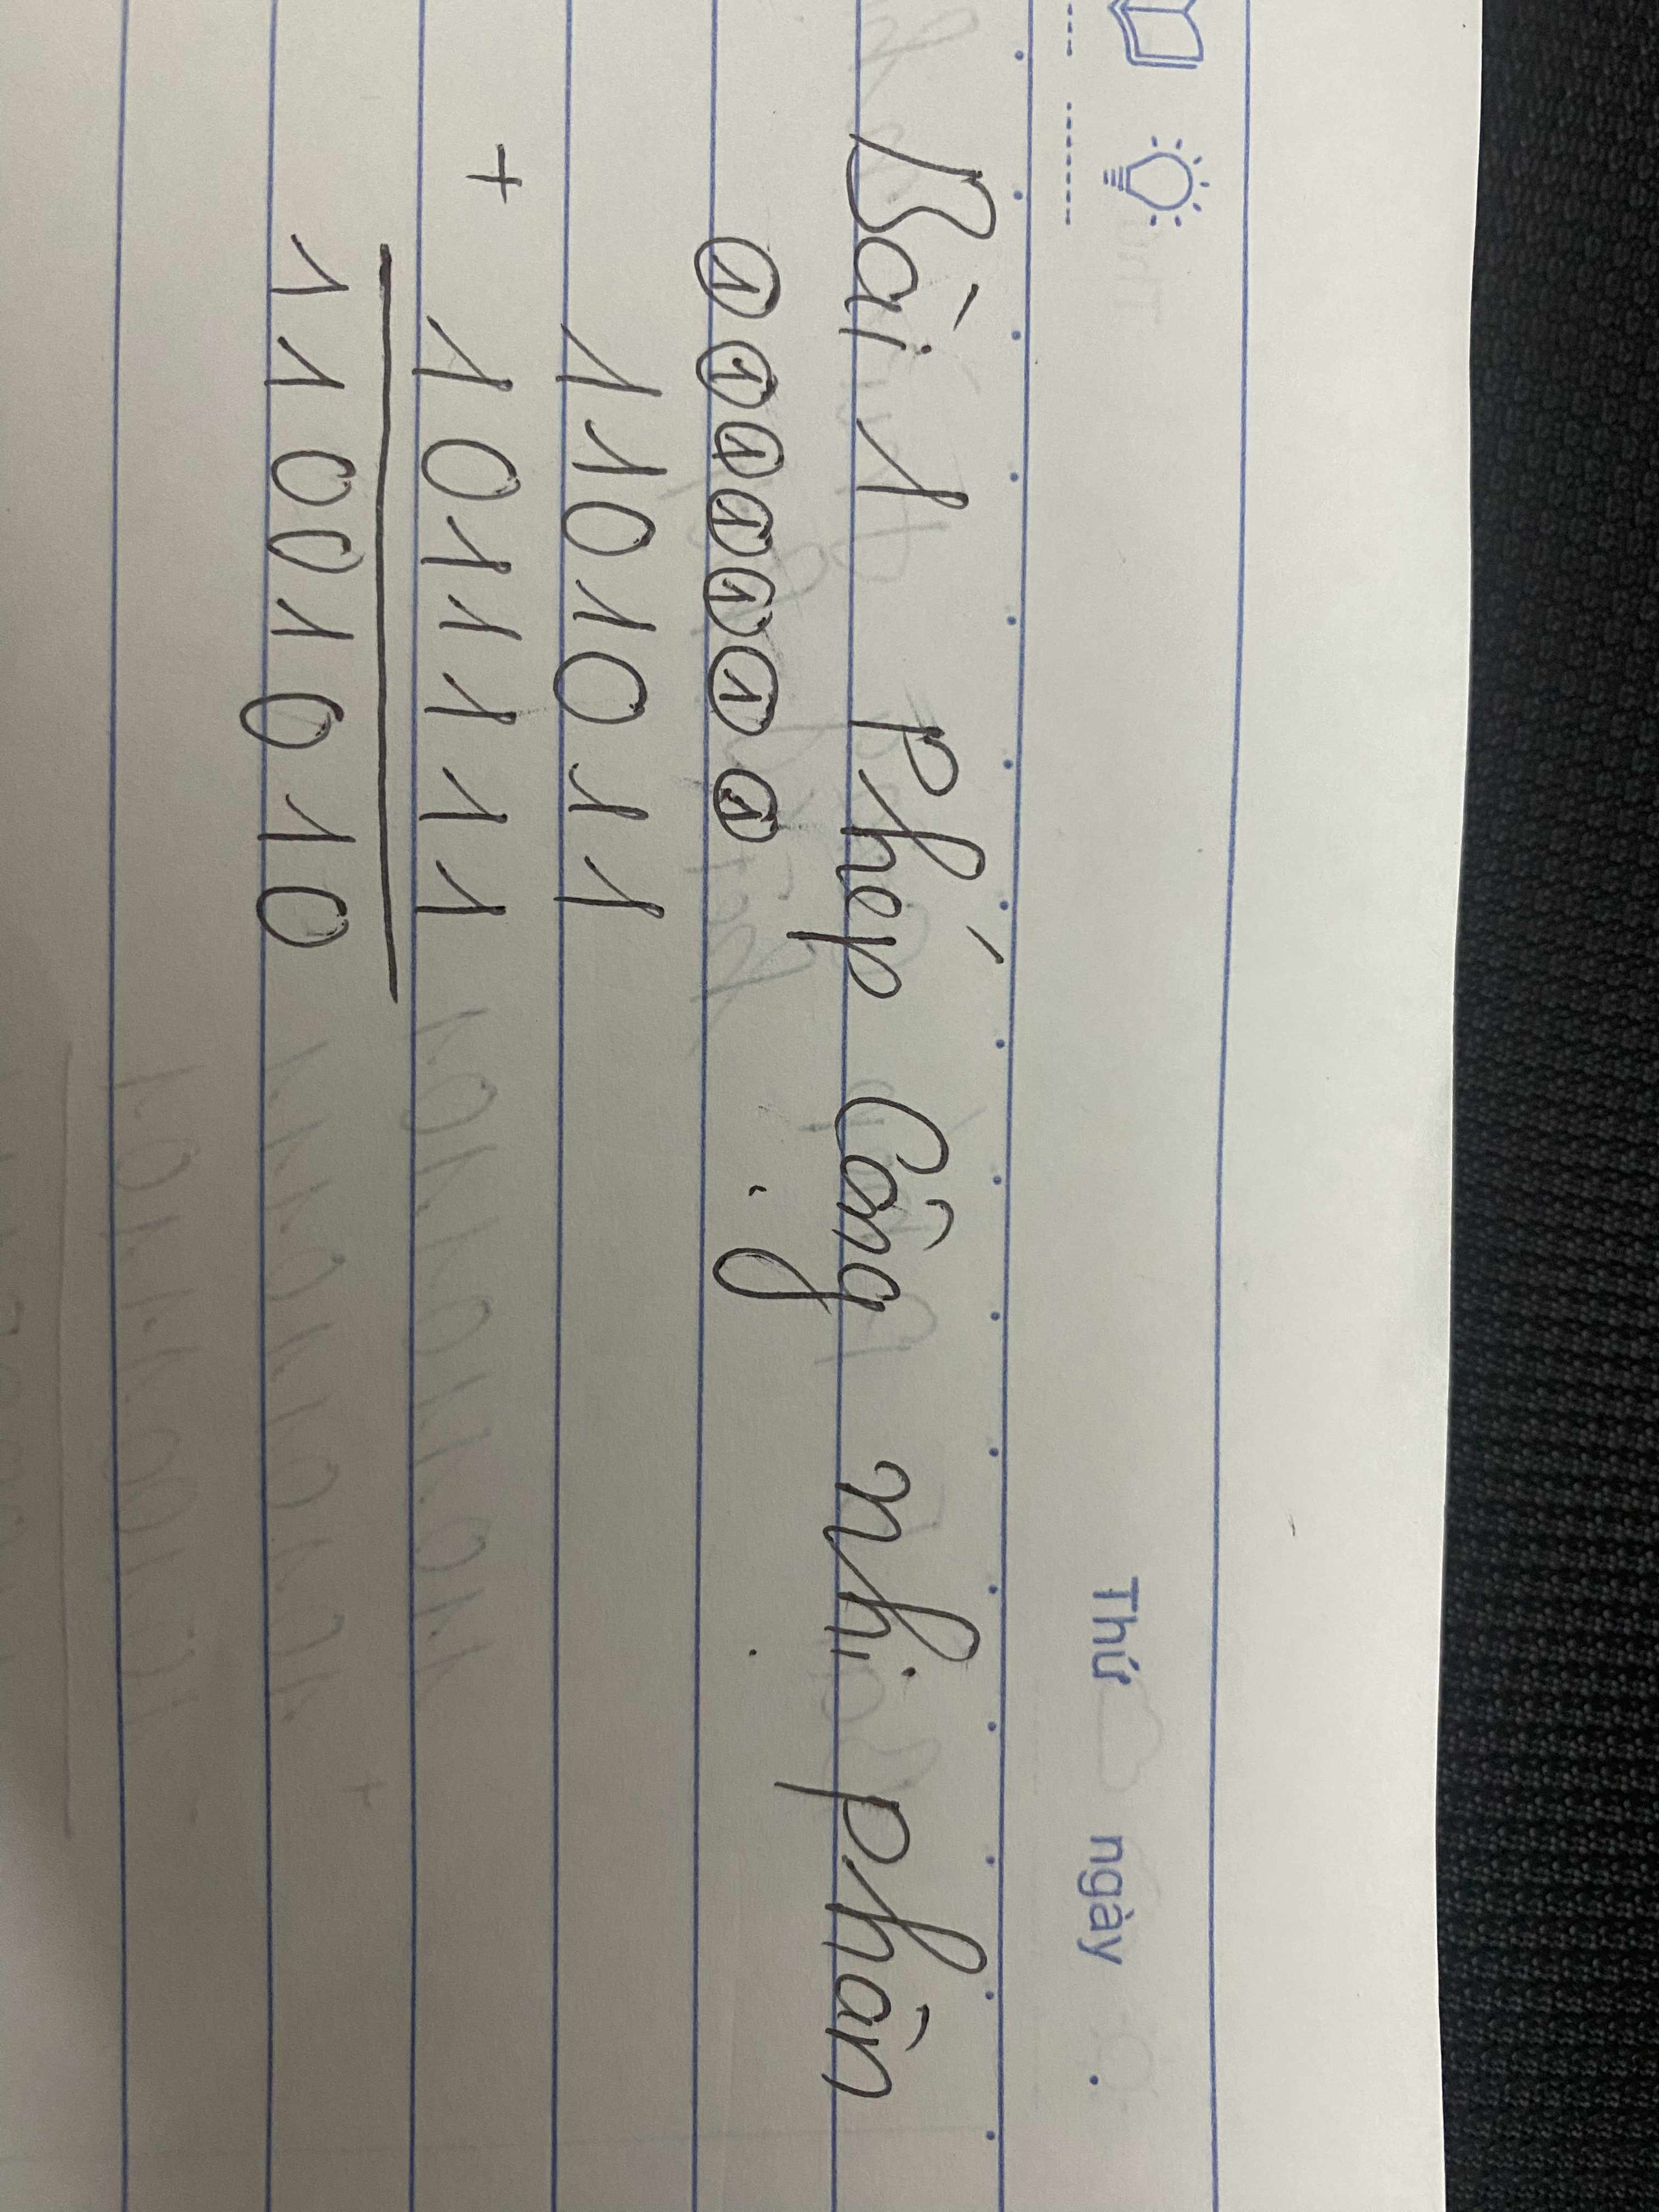 Thứ ngày
Bài 1 Phép Cộng nhị phân
1 1 1 1 1 1 1
1 1 0 1 0 1 1
+ 1 0 1 1 1 1 1
1 1 0 0 1 0 1 0